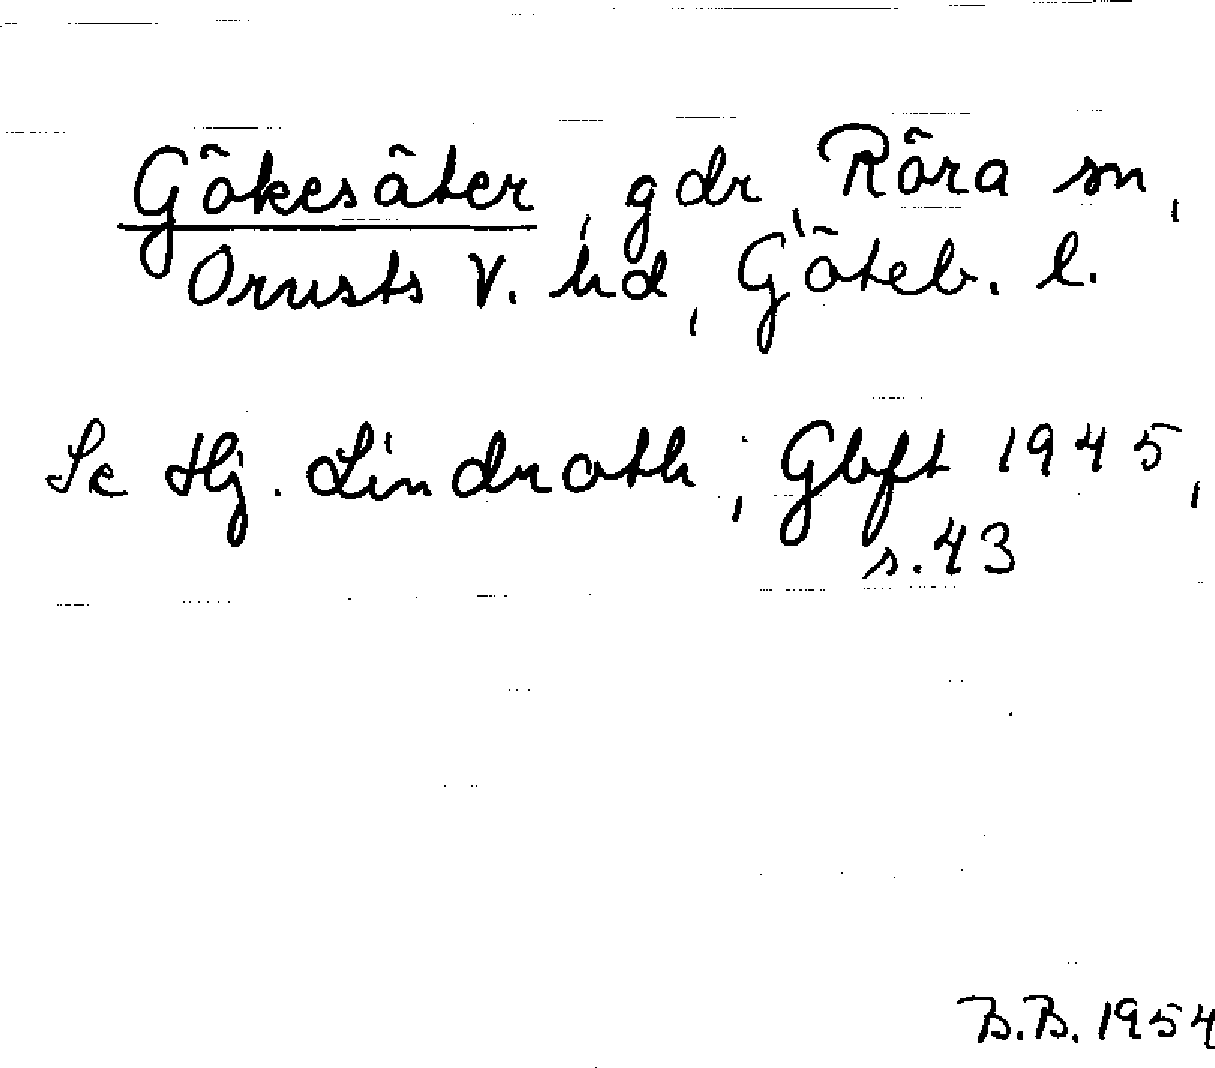 Gökesäter, gdr, Röra sn,
Orusts V. hd, Göteb. l.
Se Hj. Lindroth, Gbft 1945,
s. 43
B.B. 1954